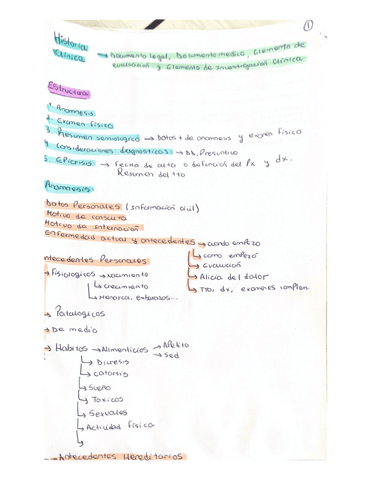 ①
Historia
Clínica → Documento legal, Documento medico, Elemento de
evaluacion y Elemento de Investigacion Clinica
Estructura
1. Anamnesis
2. Examen Físico
3. Resumen semiologico → Datos + de anamnesis y examen físico
4. Consideraciones diagnosticas → Dx. Presuntivo
5. Epicrisis → Fecha de alta o defuncion del Px y dx.
Resumen del tto
Anamnesis
Datos Personales (Informacion civil)
Motivo de consulta
Motivo de internacion
Enfermedad actual y antecedentes → cuando empezo
↳ como empezó
Antecedentes Personales ↳ Evaluación
→ Fisiologicos → nacimiento ↳ Alicia del dolor
↳ crecimiento ↳ Tto, dx, examenes complem.
↳ Menarca, Embarazos...
→ Patologicos
→ De medio
→ Habitos → Alimenticios → Apetito
→ Sed
↳ Diuresis
↳ Catarsis
↳ Sueño
↳ Toxicos
↳ Sexuales
↳ Actividad física
↳
→ Antecedentes Hereditarios